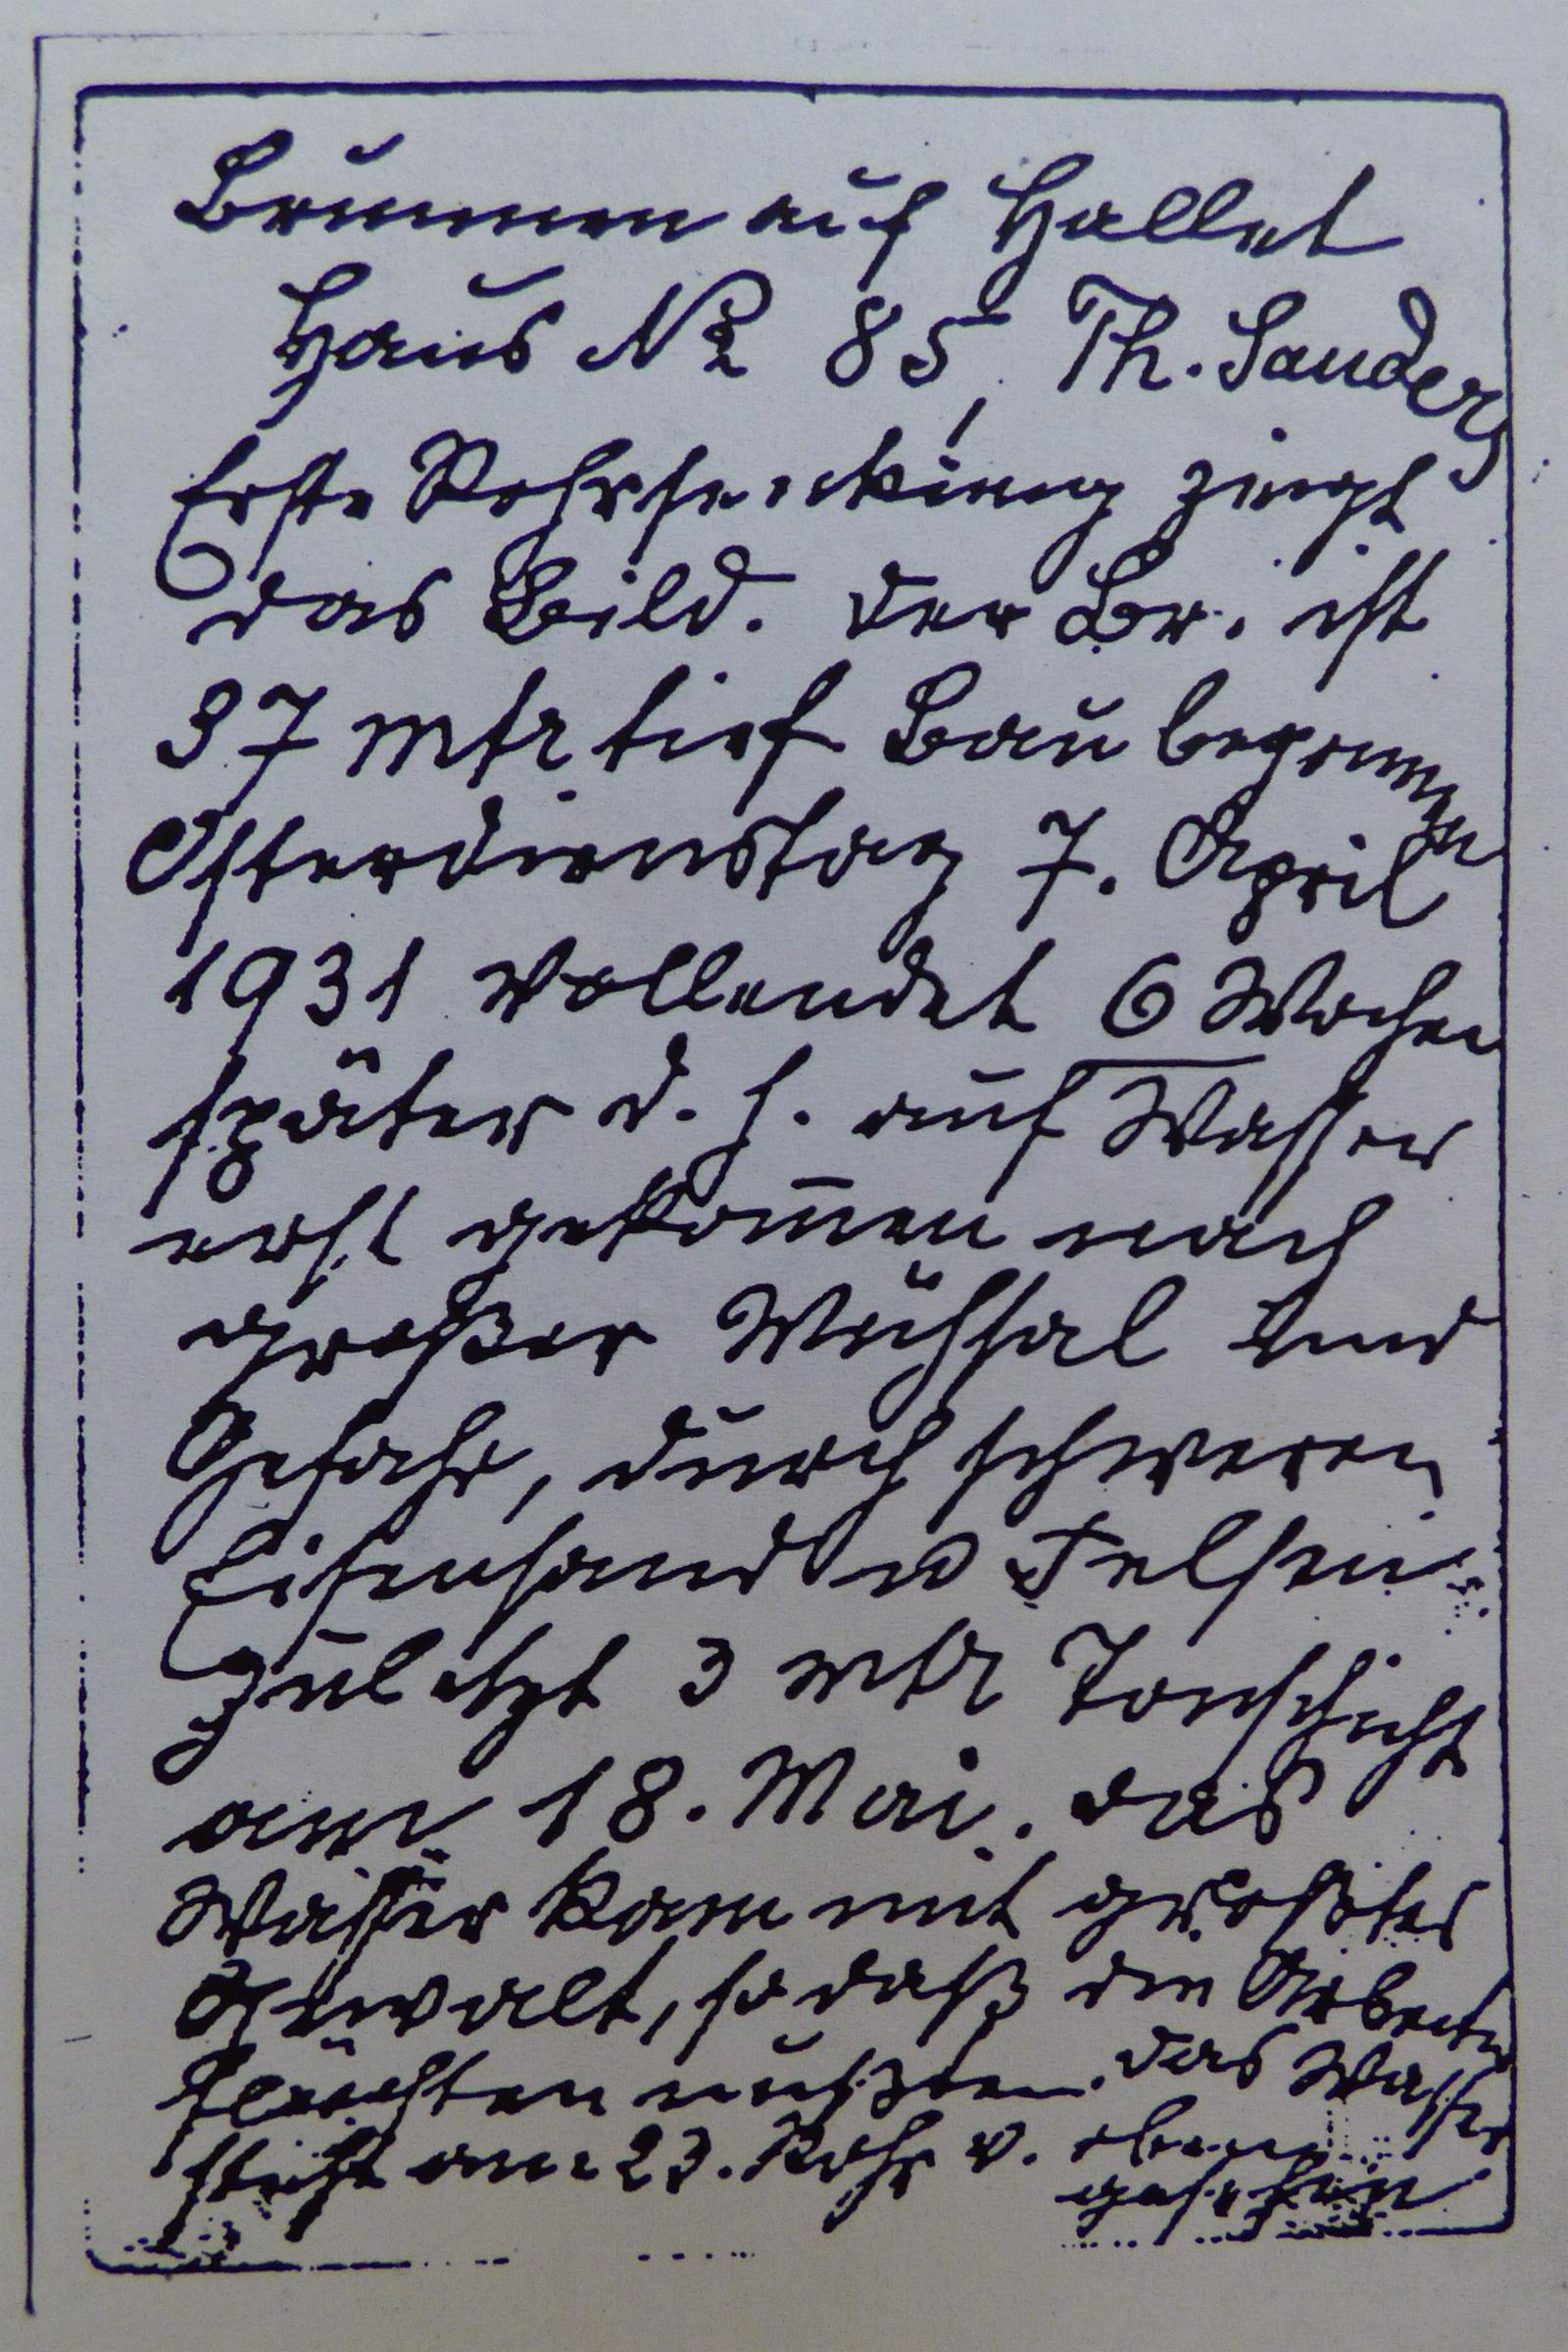 Brunnen auf Hallet
Haus No 85, Th. Sanders
Erste Rohrsenkung zeigt
das Bild. Der Br. ist
37 mtr tief Bau begonnen
Osterdienstag 7. April
1931 vollendet 6 Wochen
später d. h. auf Wasser
erst gekom̅en nach
großer Mühsal und
Gefahr, durch schweren
Eisensand u Felsen
zuletzt 3 mtr Tonschicht
am 18. Mai. das
Wasser kam mit größter
Gewalt, so daß die Arbeiter
flüchten mußten. das Wasser
steht am 23. Rohr v. oben
gesehen